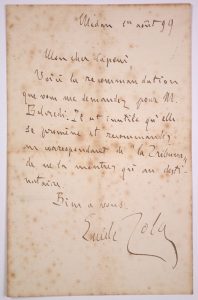 Médan 1er août 99
Mon cher Capoui
Voici la recommandation
que vous me demandez pour M.
Il est inutile qu'elle
se promène et recommandez
au correspondant de la Tribuna
de ne la montrer qu'au desti-
nataire
Bien à vous
Emile Zola